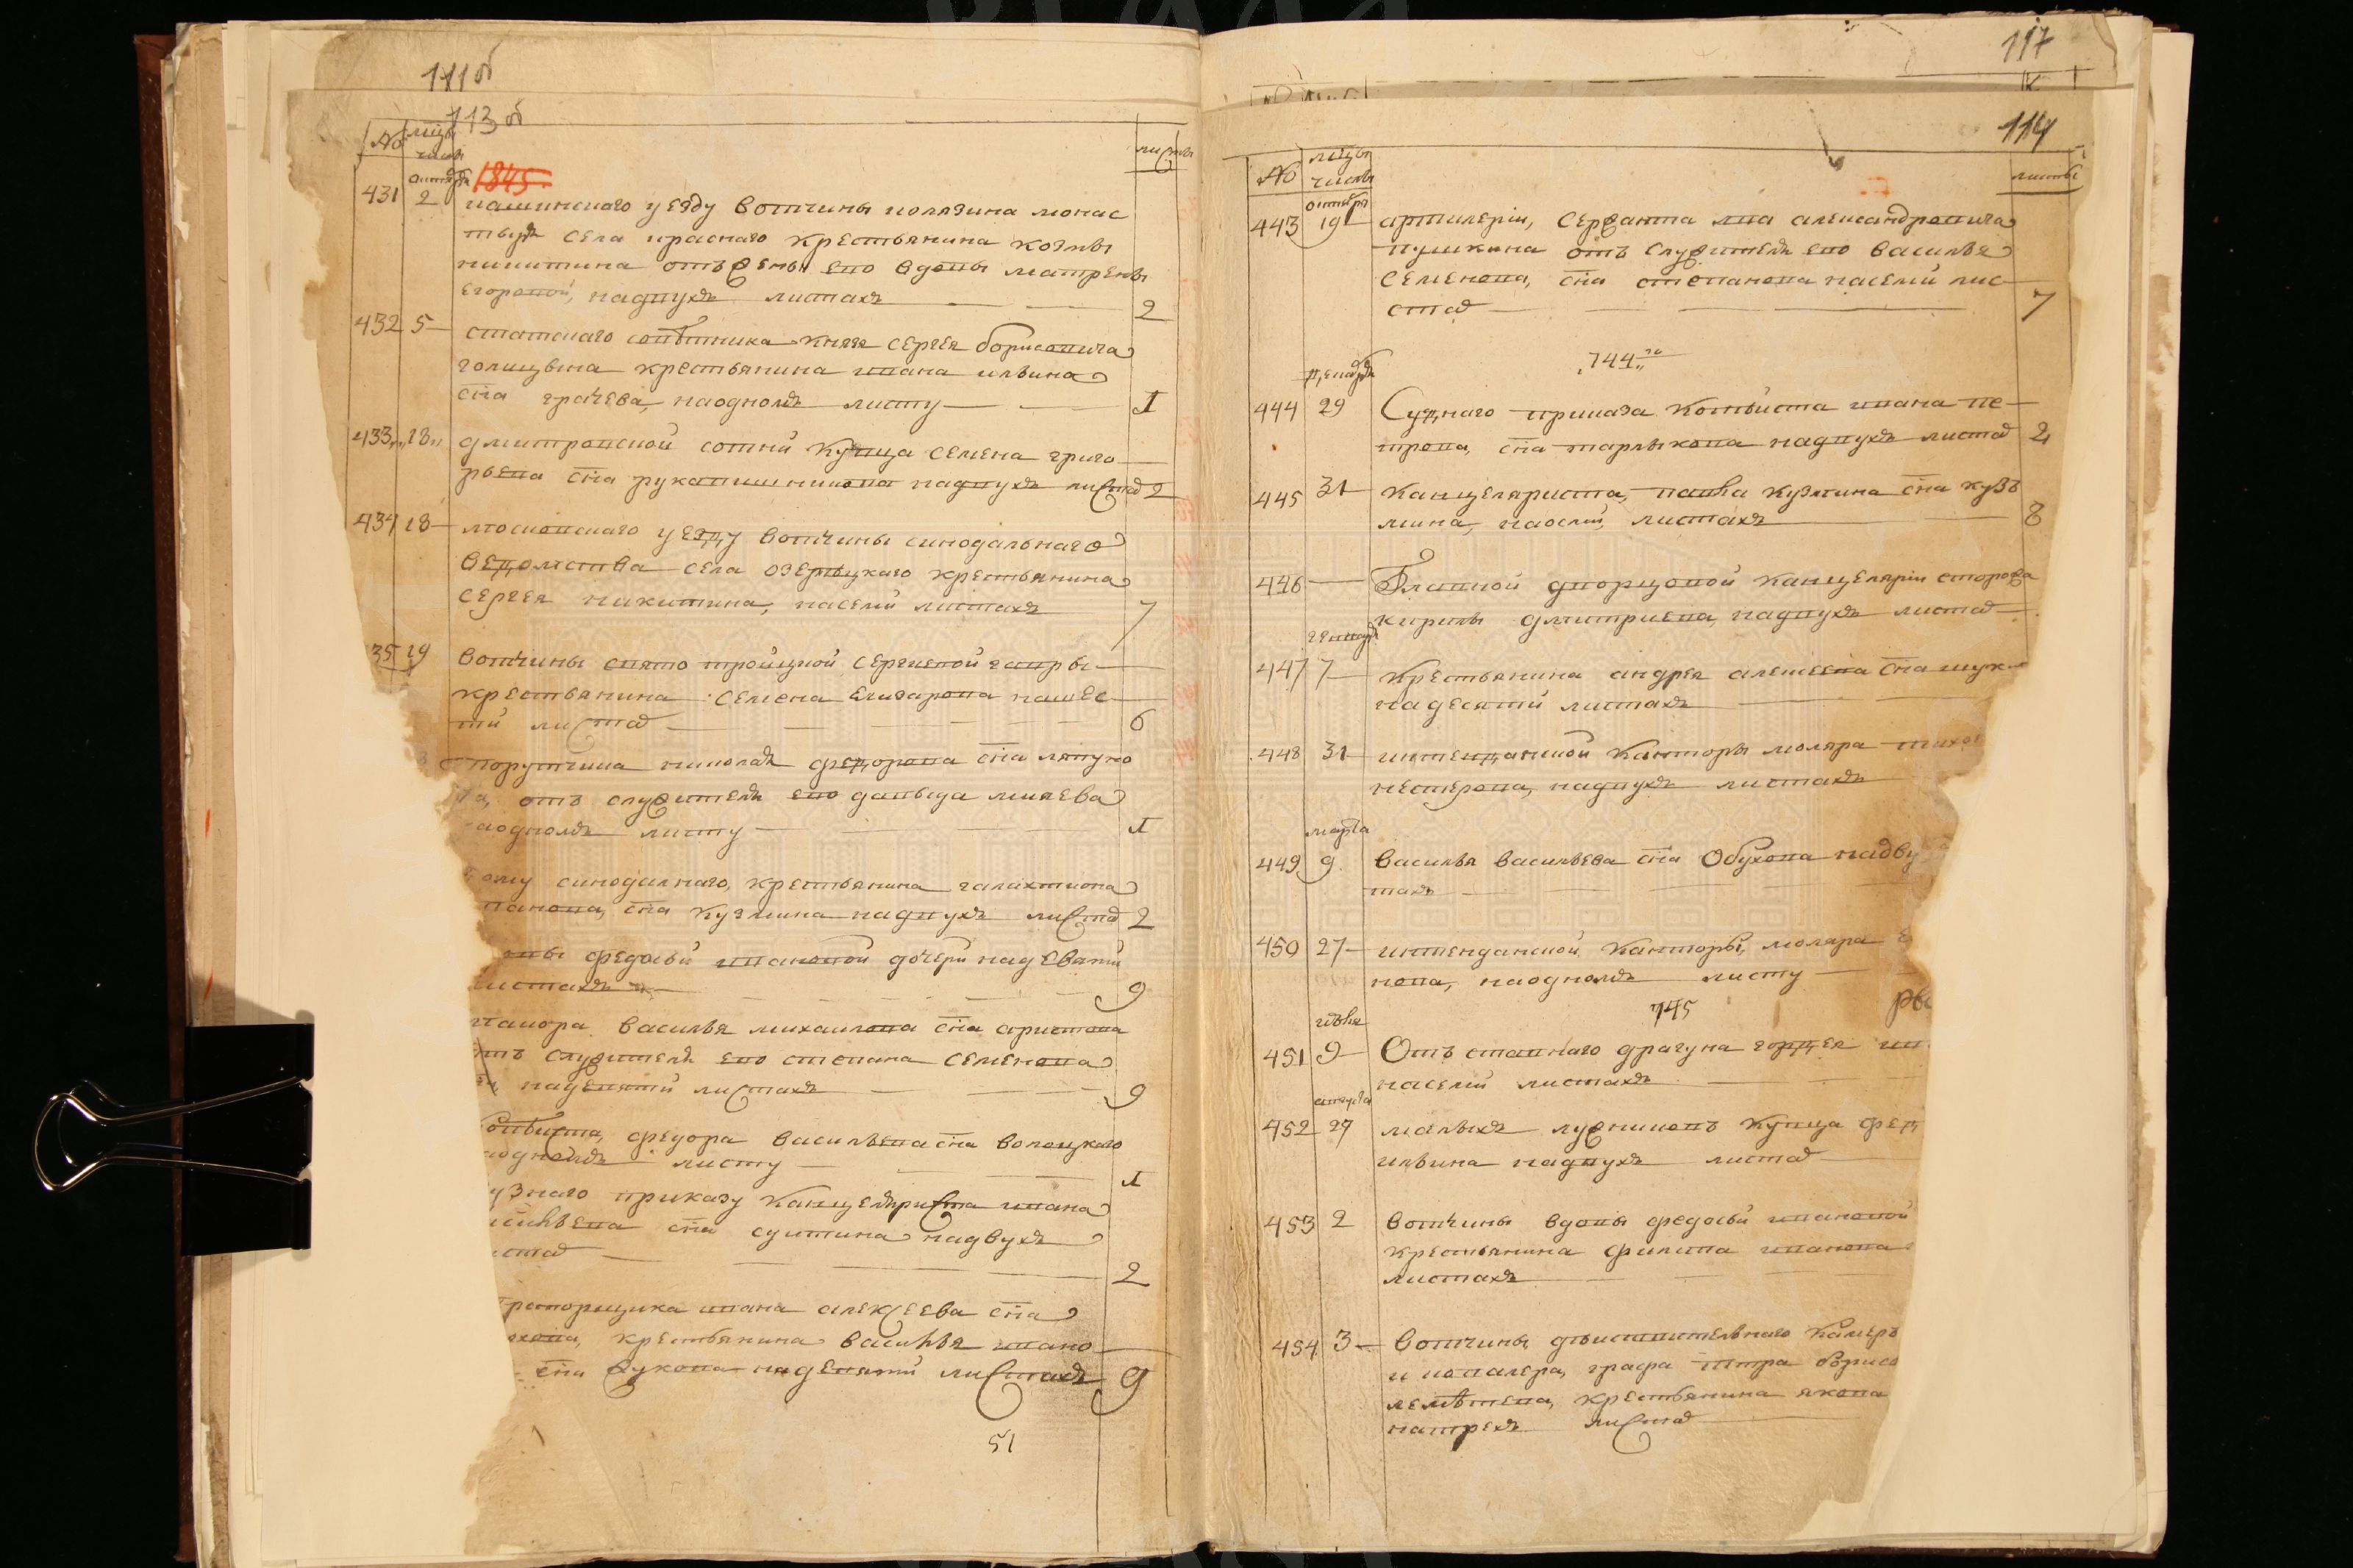 111об
113об
№ мцы числы листы
октябрь 1845
431 2 кашинского уезду вотчины колязина монас
тыря села красного крестьянина козмы
никитина от жены ево вдовы матрены
егоровой, надвухъ листахъ 2
432 5 статского советника князя сергея борисовича
голицына крестьянина ивана ильина
сна грачева, наодномъ листу 1
433 18 дмитровской сотни купца семена григо
рьева сна рукавишникова надвухъ листах 2
434 18 московского уезду вотчины синодального
ведомства села озерецкаго крестьянина
сергея никитина, насеми листахъ 7
35 19 вотчины свято троицкой сергиевой лавры
крестьянина семена елизарова нашес
ти листах 6
порутчика николая федорова сна ляпуно
ва, отъ служителя ево давыда миляева
аодномъ листу 1
ому синодалного, крестьянина галахтиона
панова, сна кузмина надвухъ листах 2
овы федосьи ивановой дочери надевяти
листахъ 9
маиора василья михаилова сна аристова
отъ служителя ево степана семенова
надевяти листахъ 9
опеиста, федора васильева сна волоцкого
аодномъ листу 1
узного приказу канцеляриста ивана
асильева сна судитина надвухъ
истах 2
апорщика ивана алексеева сна
хова, крестьянина василья ивано
сна жукова надевяти листахъ 9
51
117
114
№ мцы числы листы
октября
443 19 артилерии, сержанта лва александровича
пушкина отъ служителя ево василья
семенова, сна степанова насеми лис
тах 7
744го
декабрь
444 29 Судного приказа копеиста ивана пе
трова, сна тарлыкова надвухъ листах 2
445 31 Канцеляриста, павла кузмина сна кузь
мина, наосми, листахъ 8
446 Главной дворцовой канцелярии сторожа
кирилы дмитриева, надвухъ листах
генварь
447 7 Крестьянина андрея алексеева сна шук
надесяти листахъ
448 31 интенданской канторы моляра тихо
нестерова, надвухъ листахъ
марта
449 9 василья васильева сна Обухова надву
тахъ
450 27 интенданской канторы, моляра е
нова, наодномъ листу
745
451 9 Отъ ставного драгуна гордея ив
насеми листахъ
августа
452 27 малыхъ лужниковъ купца фед
ильина надвухъ листах
453 2 вотчины вдовы федосьи ивановой
крестьянина филипа иванова
листахъ
454 3 вотчины, действительного камеръ
и ковалера, графа петра борисо
реметева, крестьянина якова
натрехъ листах